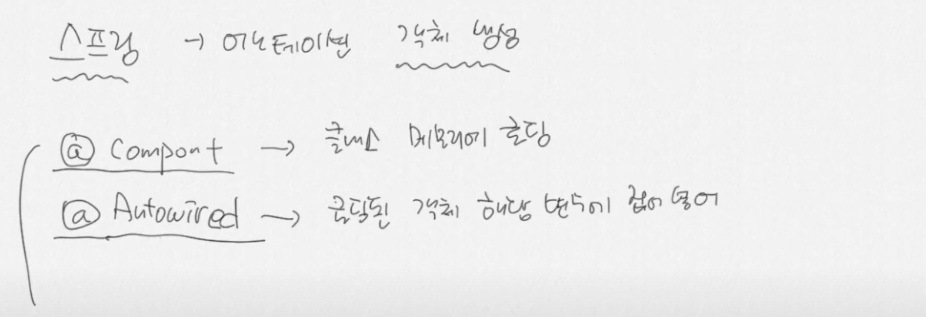 스프링 → 어노테이션 객체 생성
@ Compont → 클래스 메모리에 로딩
@ Autowired → 로딩된 객체 해당 변수에 집어 넣어